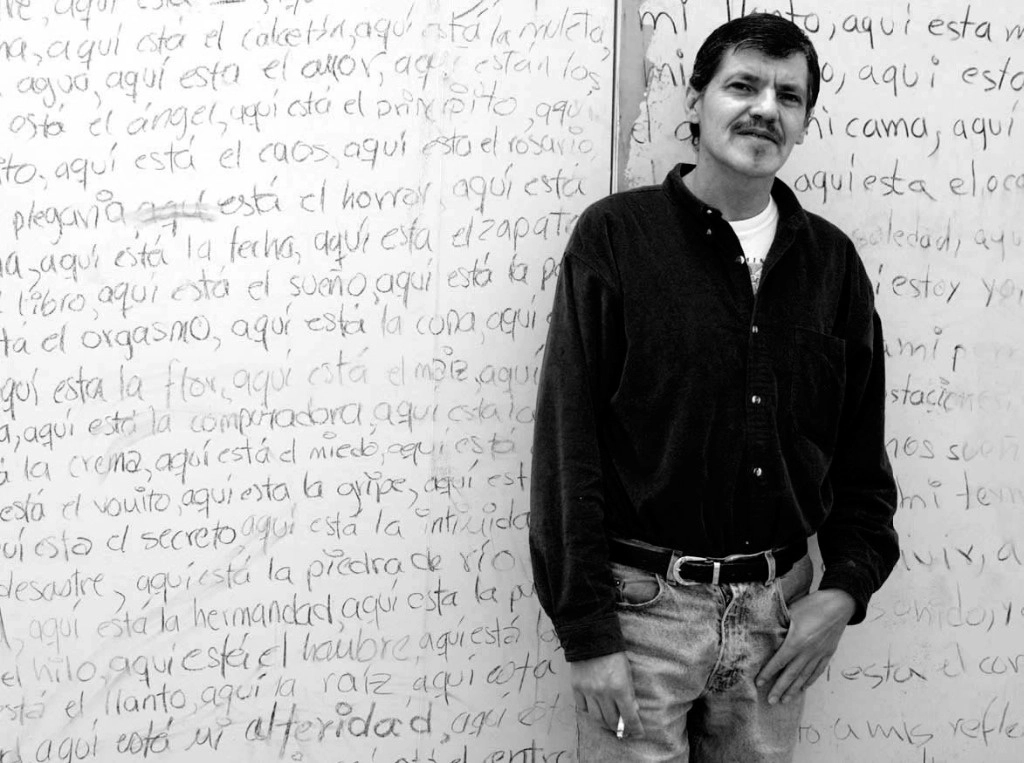 aquí está
aquí está el calcetín, aquí está la muleta,
agua, aquí esta el amor, aquí están los
está el ángel, aquí está el principito, aquí
aquí está el caos, aquí esta el rosario,
plegaria aquí está el horror, aquí está
aquí está la fecha, aquí esta el zapat
libro, aquí está el sueño, aquí está la p
tá el orgasmo, aquí está la copa, aquí
aquí esta la flor, aquí está el maíz, aquí
a, aquí está la computadora, aquí esta la
á la crema, aquí está el miedo, aquí está
está el vouito, aquí esta la gripe, aquí est
uí esta el secreto aquí está la
desastre, aquí está la piedra de río
aquí está la hermandad, aquí esta la pu
el hilo, aquí está el haubre, aquí está
stá el llanto, aquí la raíz aquí esta
aquí está mi alteridad, aquí
está el entre
mi llanto, aquí esta m
mi o, aquí esta
el mi cama, aquí
aquí esta el oca
soledad, aqu
i estoy yo,
mi p
stacione
nos sueñ
mi
vivir, a
senido, y
esta el cor
to a mis refle